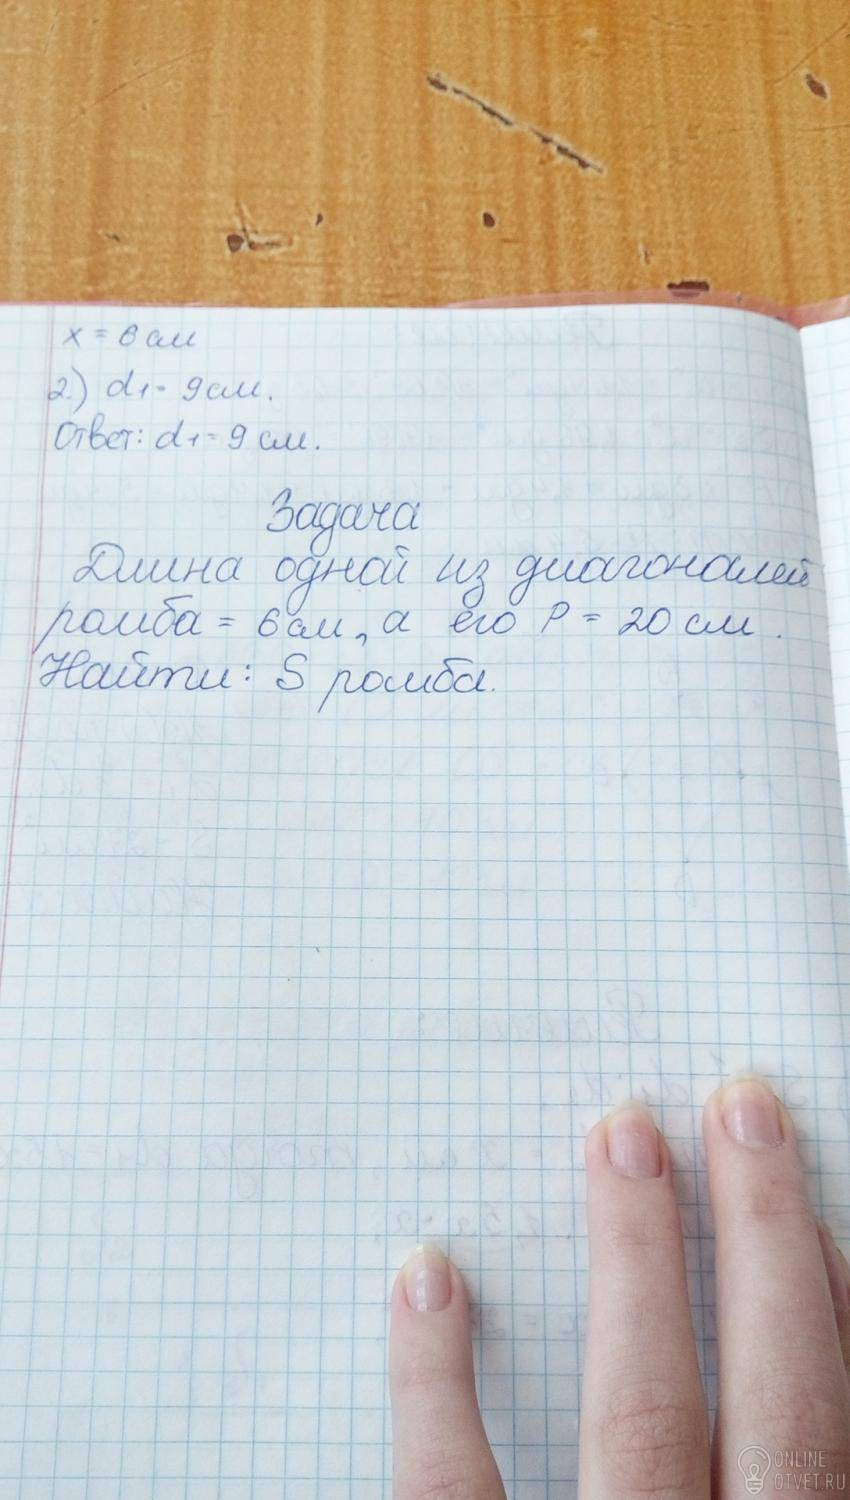 x = 6 см
2.) d1 = 9 см.
Ответ: d1 = 9 см.
Задача
Длина одной из диагоналей
ромба = 6 см, а его P = 20 см.
Найти: S ромба.
ONLINE
OTVET.RU